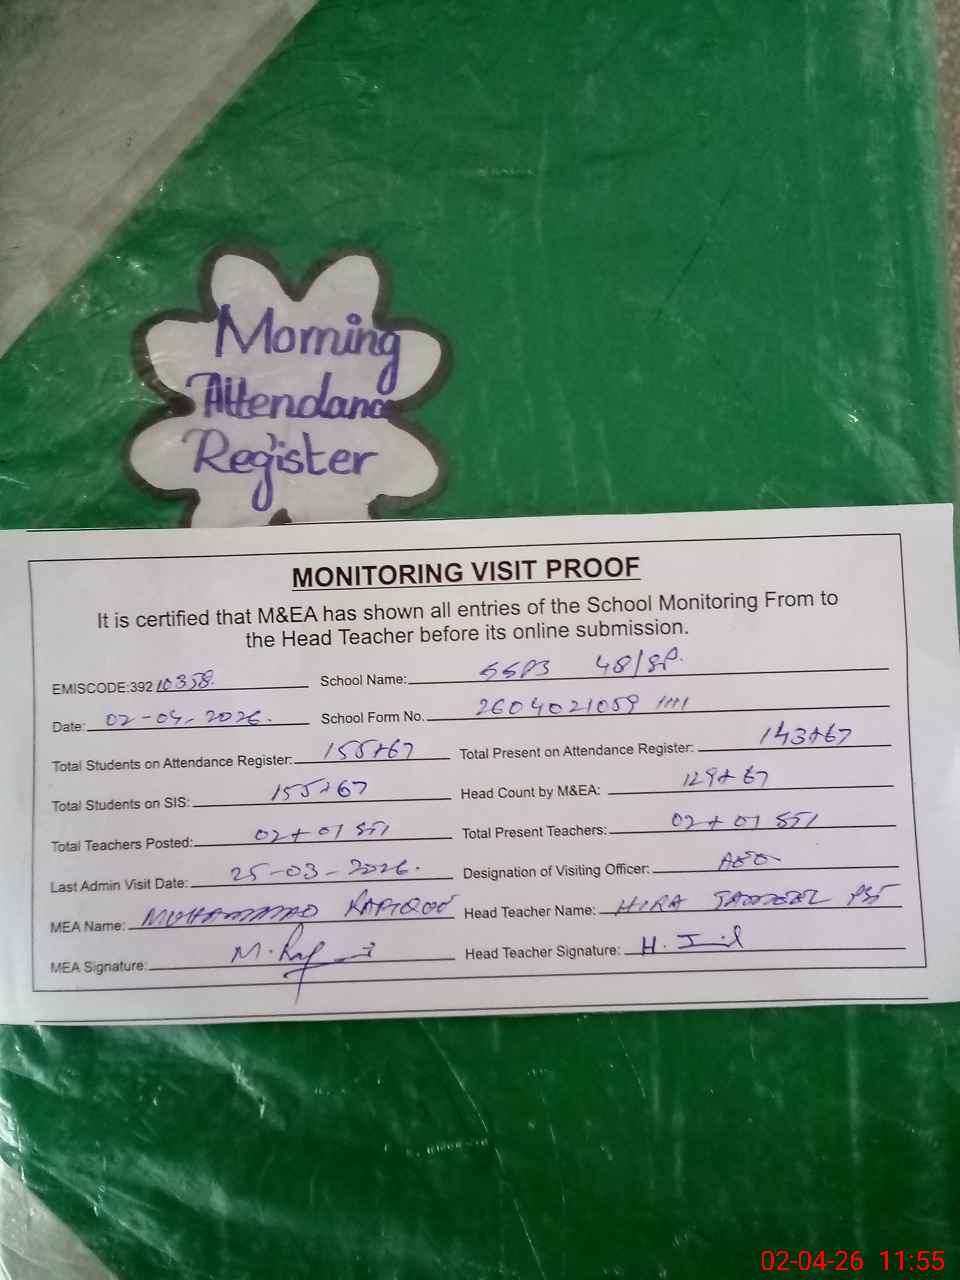 Morning
Attendance
Register
MONITORING VISIT PROOF
It is certified that M&EA has shown all entries of the School Monitoring From to
the Head Teacher before its online submission.
EMISCODE:392 10358. School Name: 48/SP.
Date: 02-04-2026. School Form No. 2604021059 1111
Total Students on Attendance Register: 155+67 Total Present on Attendance Register: 143+67
Total Students on SIS: 155+67 Head Count by M&EA: 129+67
Total Teachers Posted: 02+01 Total Present Teachers: 02+01
Last Admin Visit Date: 25-03-2026. Designation of Visiting Officer: AEO
MEA Name: MUHAMMAD Head Teacher Name: HIRA
MEA Signature: Head Teacher Signature: H.
02-04-26 11:55